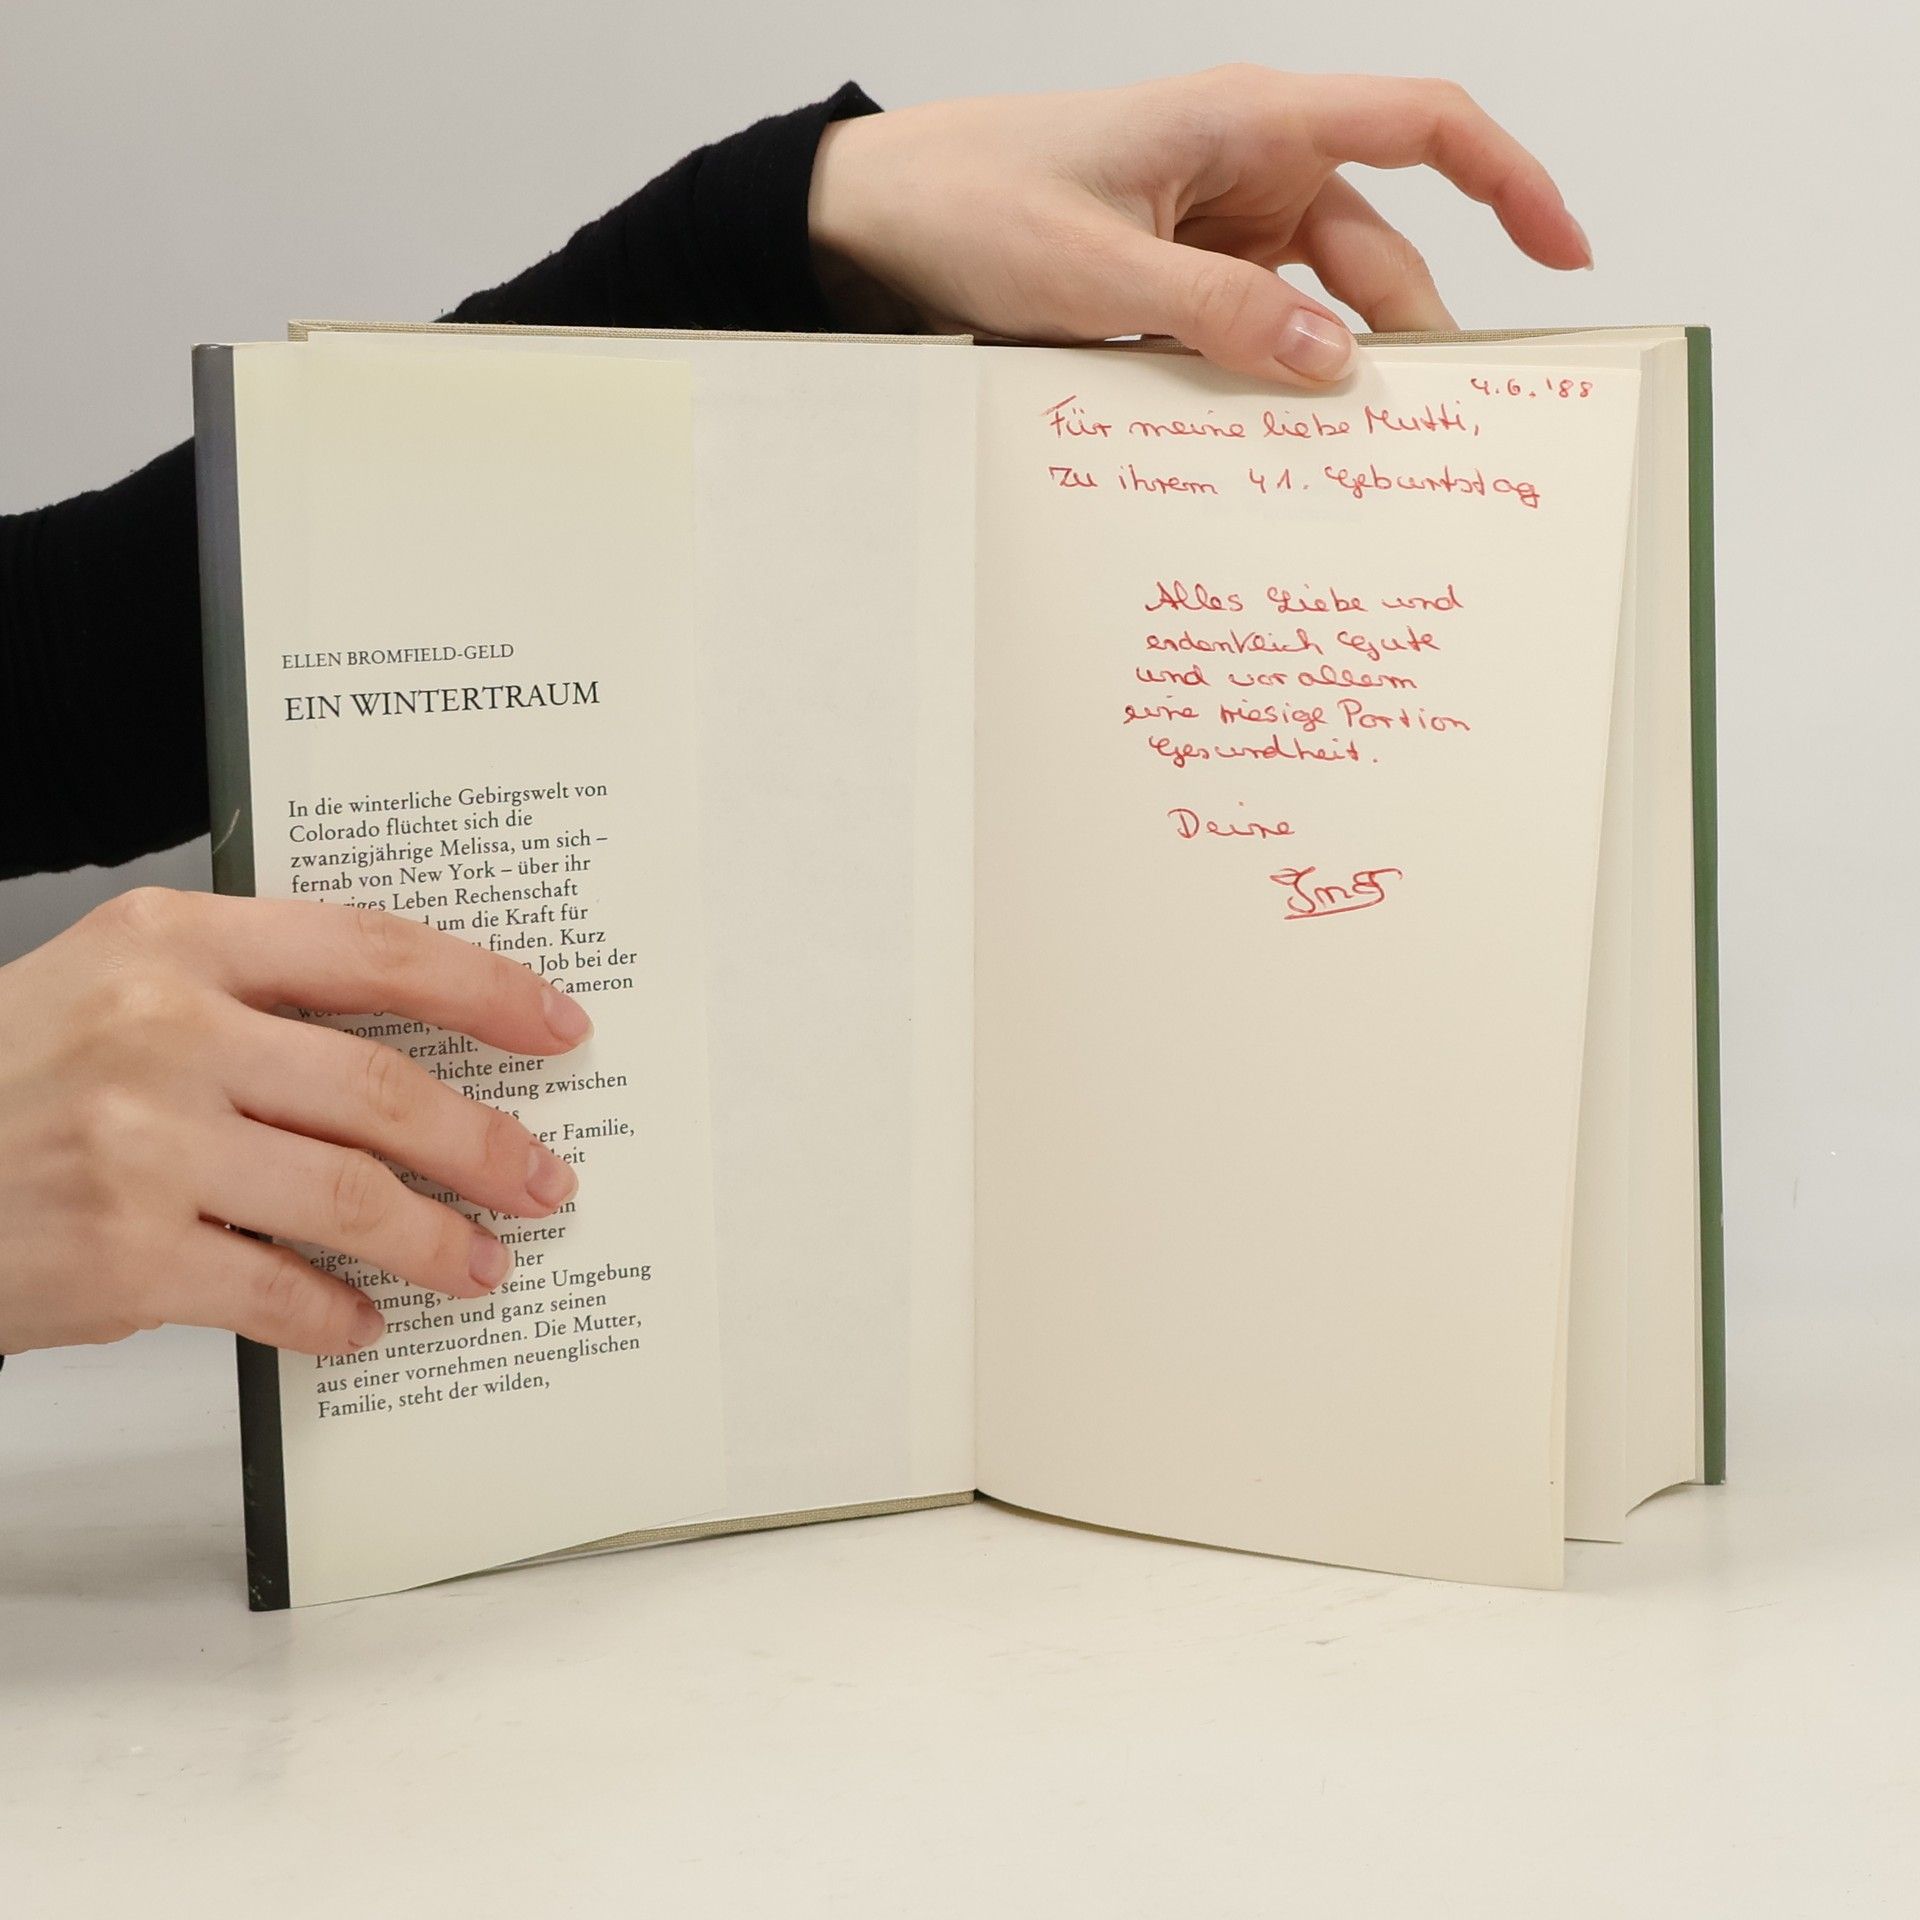 ELLEN BROMFIELD-GELD
EIN WINTERTRAUM
In die winterliche Gebirgswelt von
Colorado flüchtet sich die
zwanzigjährige Melissa, um sich –
fernab von New York – über ihr
Leben Rechenschaft
um die Kraft für
finden. Kurz
Job bei der
Cameron
erzählt.
einer
Bindung zwischen
Familie,
her
seine Umgebung
und ganz seinen
Planen unterzuordnen. Die Mutter,
aus einer vornehmen neuenglischen
Familie, steht der wilden,
4.6.'88
Für meine liebe Mutti,
zu ihrem 41. Geburtstag
Alles Liebe und
erdenklich Gute
und vor allem
eine riesige Portion
Gesundheit.
Deine